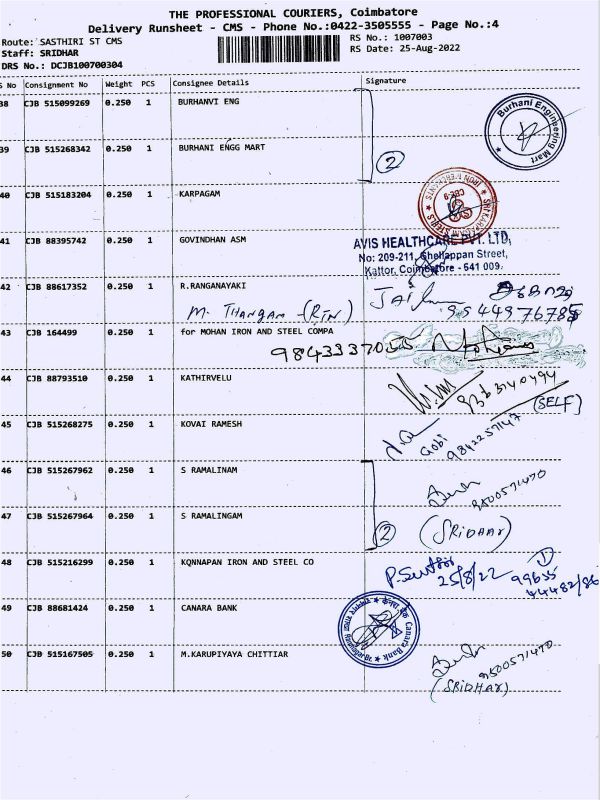 THE PROFESSIONAL COURIERS, Coimbatore
Delivery Runsheet - CMS - Phone No.:0422-3505555 - Page No.:4
Route: SASTHIRI ST CMS
RS No.: 1007003
Staff: SRIDHAR
RS Date: 25-Aug-2022
DRS No.: DCJB100700304
S No Consignment No Weight PCS Consignee Details Signature
38 CJB 515099269 0.250 1 BURHANVI ENG
Burhani Engineering Mart
39 CJB 515268342 0.250 1 BURHANI ENGG MART
2
40 CJB 515183204 0.250 1 KARPAGAM
SRI KARPAGAM STEELS
IRON MERCHANTS
CBE-9
41 CJB 88395742 0.250 1 GOVINDHAN ASM
AVIS HEALTHCARE PVT. LTD,
No: 209-211, Chellappan Street,
Kattor, Coimbatore - 641 009.
42 CJB 88617352 0.250 1 R.RANGANAYAKI
M. THANGAM - (RTN)
43 CJB 164499 0.250 1 for MOHAN IRON AND STEEL COMPA
9843337055
44 CJB 88793510 0.250 1 KATHIRVELU
9363140494
(SELF)
45 CJB 515268275 0.250 1 KOVAI RAMESH
Gobi
9842257147
46 CJB 515267962 0.250 1 S RAMALINAM
9500571470
47 CJB 515267964 0.250 1 S RAMALINGAM
2
(SRIDHAR)
48 CJB 515216299 0.250 1 KONNAPAN IRON AND STEEL CO
25/8/22
1
49 CJB 88681424 0.250 1 CANARA BANK
Canara Bank
50 CJB 515167505 0.250 1 M.KARUPIYAYA CHITTIAR
9500571470
(SRIDHAR)